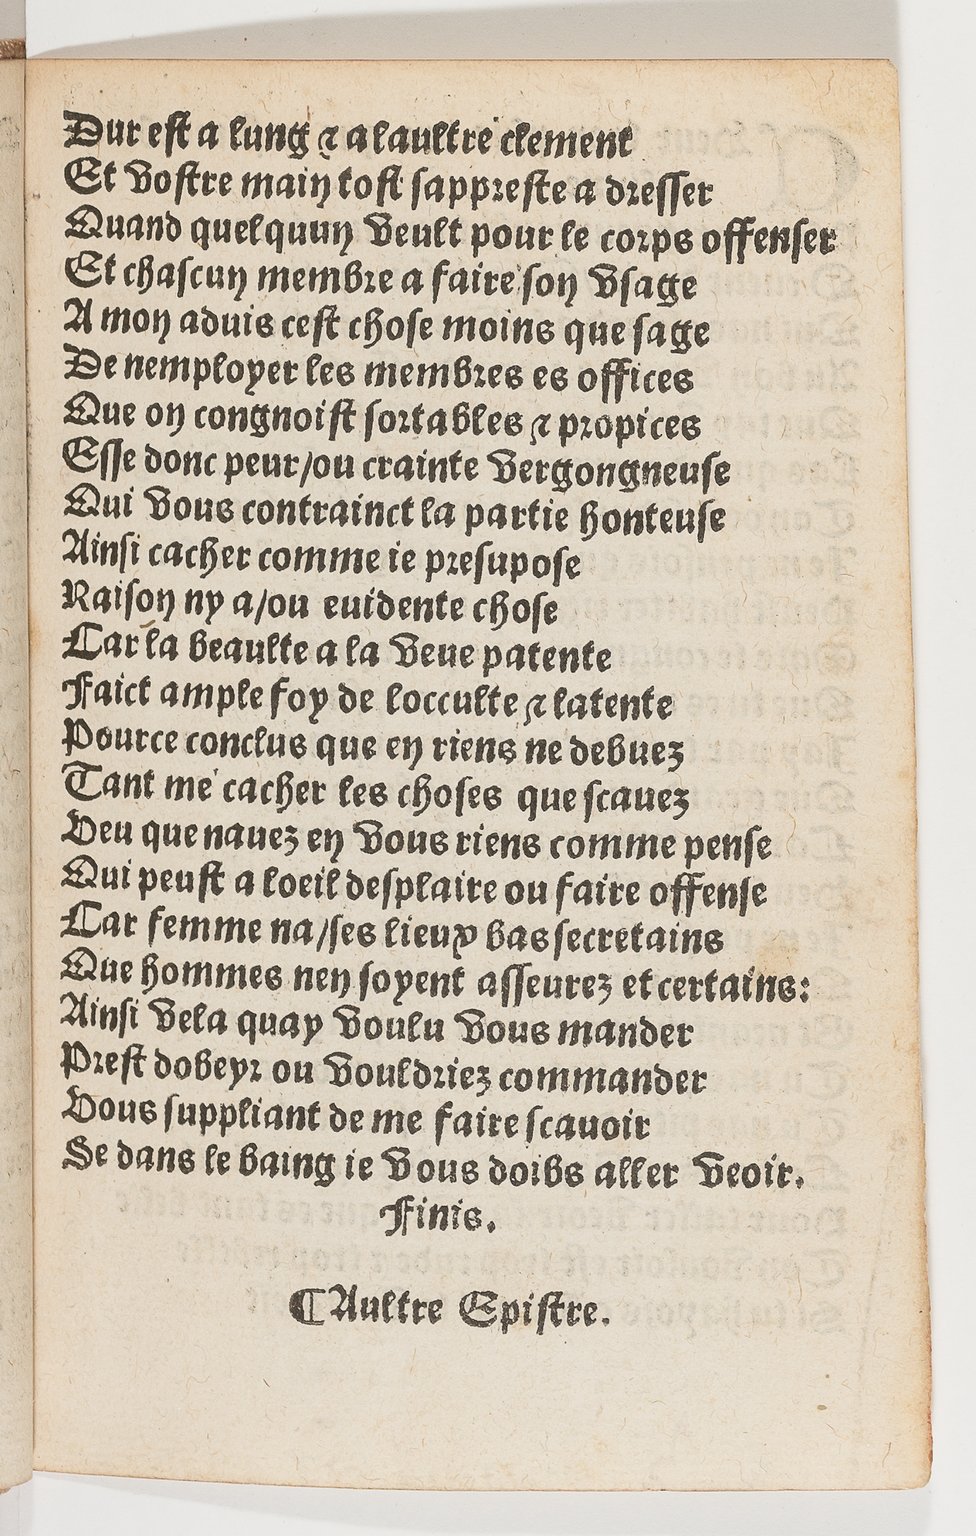 Dur est a lung ⁊ a laultre clement
Et vostre main tost sappreste a dresser
Quand quelquun veult pour le corps offenser
Et chascun membre a faire son vsage
A mon aduis cest chose moins que sage
De nemployer les membres es offices
Que on congnoist sortables ⁊ propices
Esse donc peur/ou crainte vergongneuse
Qui vous contrainct la partie honteuse
Ainsi cacher comme ie presupose
Raison ny a/ou euidente chose
Car la beaulte a la veue patente
Faict ample foy de locculte ⁊ latente
Pource conclus que en riens ne debuez
Tant me cacher les choses que scauez
Veu que nauez en vous riens comme pense
Qui peust a loeil desplaire ou faire offense
Car femme na/ses lieux bas secretains
Que hommes nen soyent asseurez et certains:
Ainsi vela quay voulu vous mander
Prest dobeyr ou vouldriez commander
Vous suppliant de me faire scauoir
Se dans le baing ie vous doibs aller veoir.
Finis.
¶Aultre Epistre.